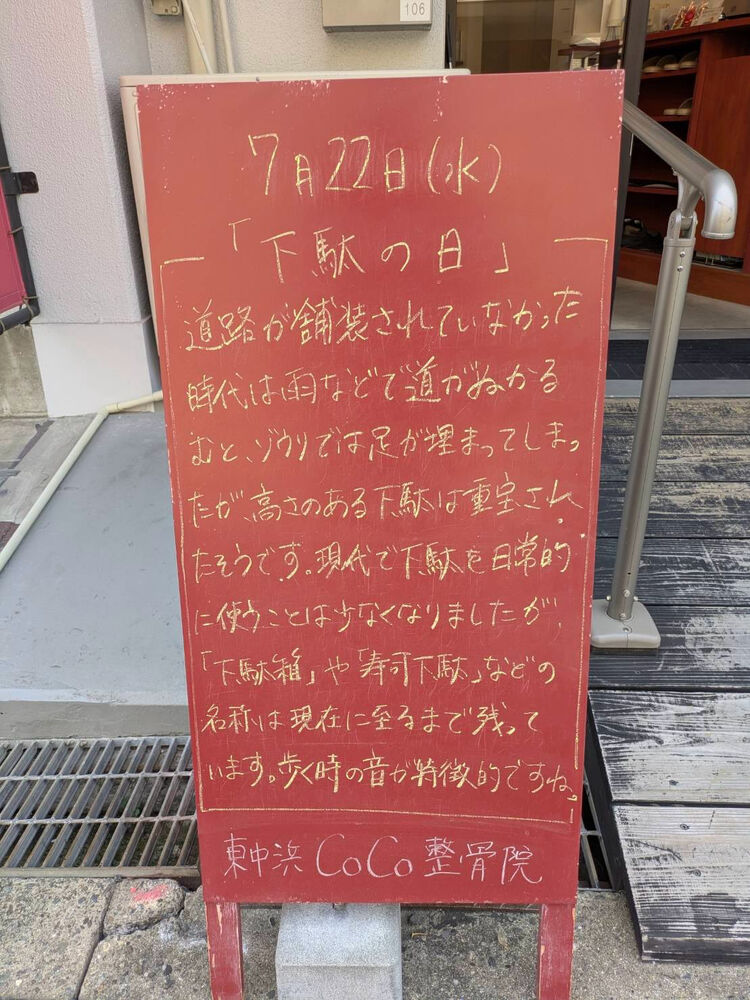 106
7月22日(水)
「下駄の日」
道路が舗装されていなかった
時代は雨などで道がぬかる
むと、ゾウリでは足が埋まってしまっ
たが、高さのある下駄は重宝され
たそうです。現代で下駄を日常的
に使うことは少なくなりましたが、
「下駄箱」や「寿司下駄」などの
名称は現在に至るまで残って
います。歩く時の音が特徴的ですね。
東中浜 CoCo 整骨院